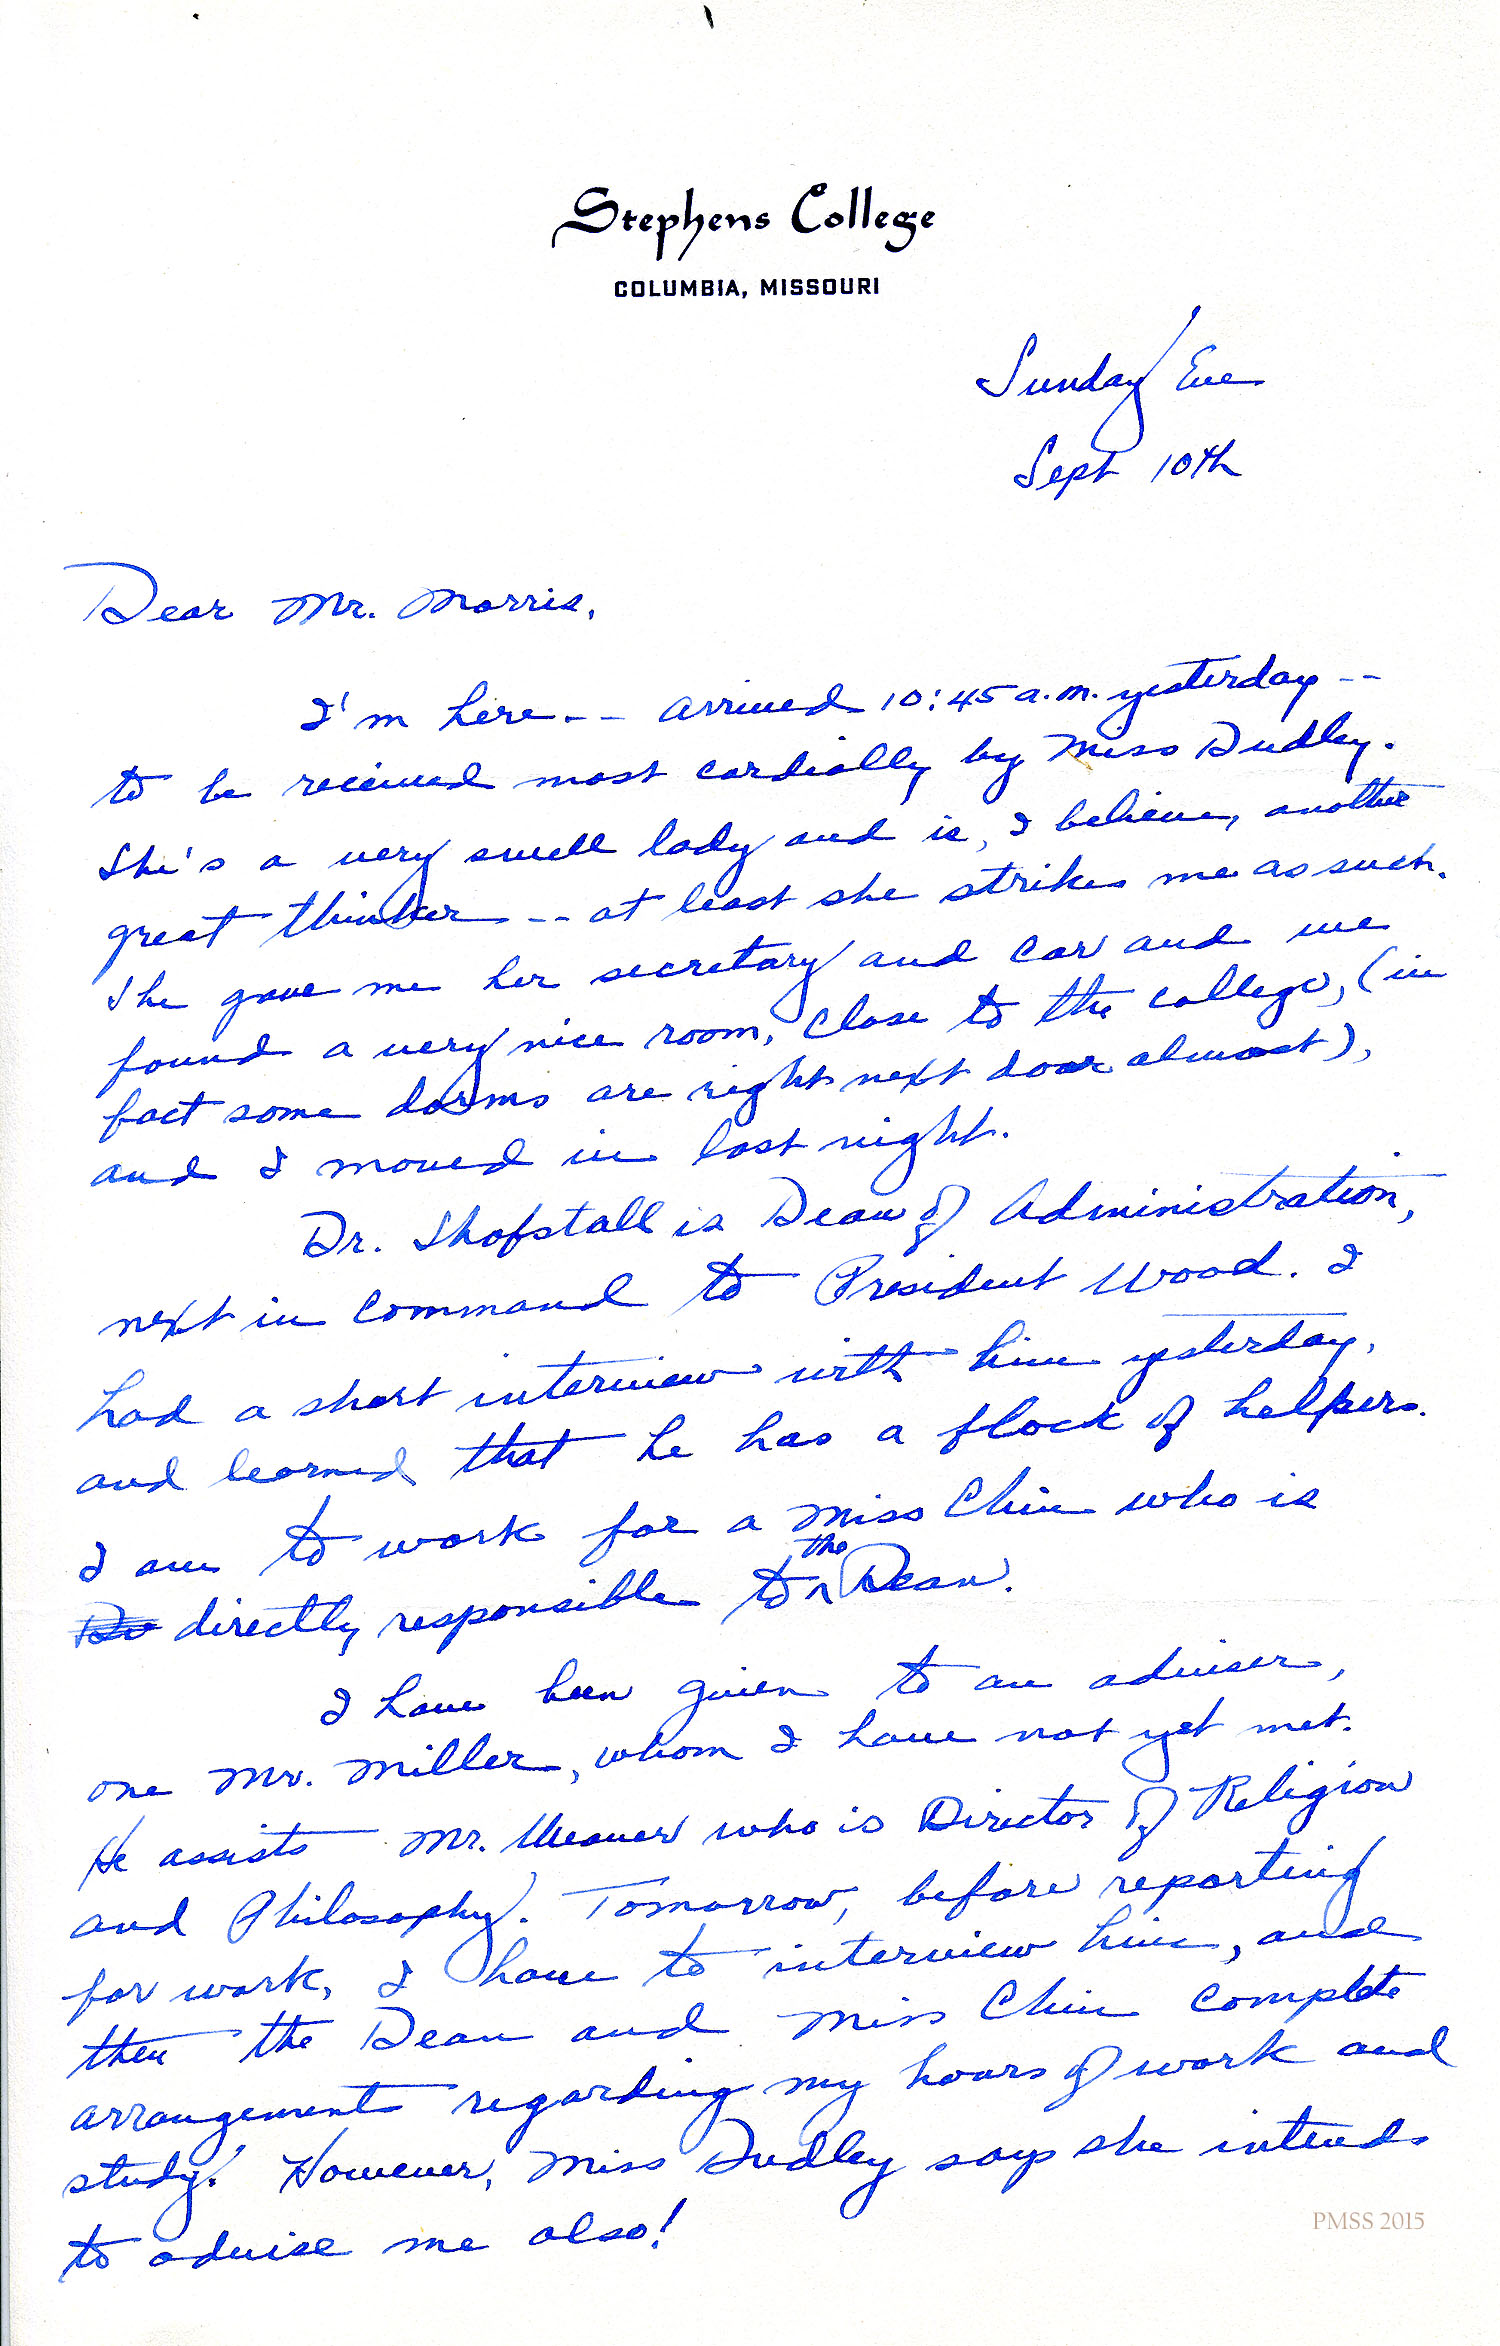 Stephens College
COLUMBIA, MISSOURI
Sunday Eve
Sept 10th
Dear Mr. Morris,
I'm here -- arrived 10:45 a.m. yesterday --
to be received most cordially by Miss Dudley.
She's a very swell lady and is, I believe, another
great thinker -- at least she strikes me as such.
She gave me her secretary and car and we
found a very nice room, close to the college, (in
fact some dorms are right next door almost),
and I moved in last night.
Dr. Shofstall is Dean of Administration,
next in command to President Wood. I
had a short interview with him yesterday,
and learned that he has a flock of helpers.
I am to work for a Miss Chin who is
directly responsible to the Dean.
I have been given to an adviser,
one Mr. Miller, whom I have not yet met.
He assists Mr. Weaver who is Director of Religion
and Philosophy. Tomorrow, before reporting
for work, I have to interview him, and
then the Dean and Miss Chin complete
arrangements regarding my hours of work and
study! However, Miss Dudley says she intends
to advise me also!
PMSS 2015